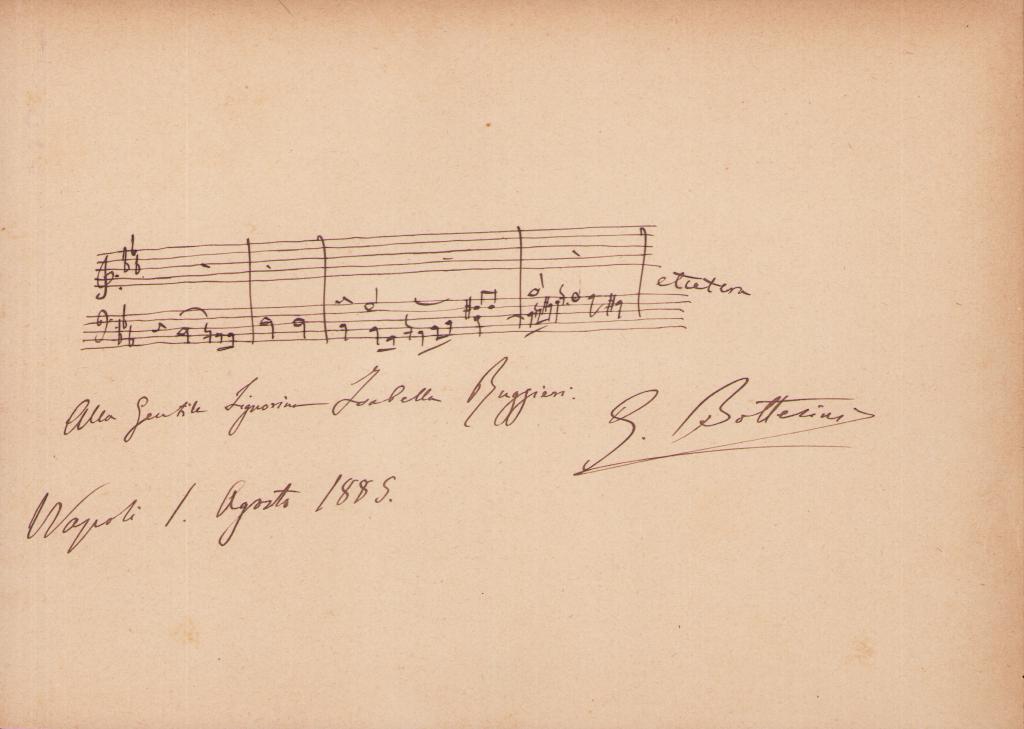 etcetera
Alla Gentile Signorina Isabella Ruggieri.
G. Bottesini
Napoli 1. Agosto 1885.